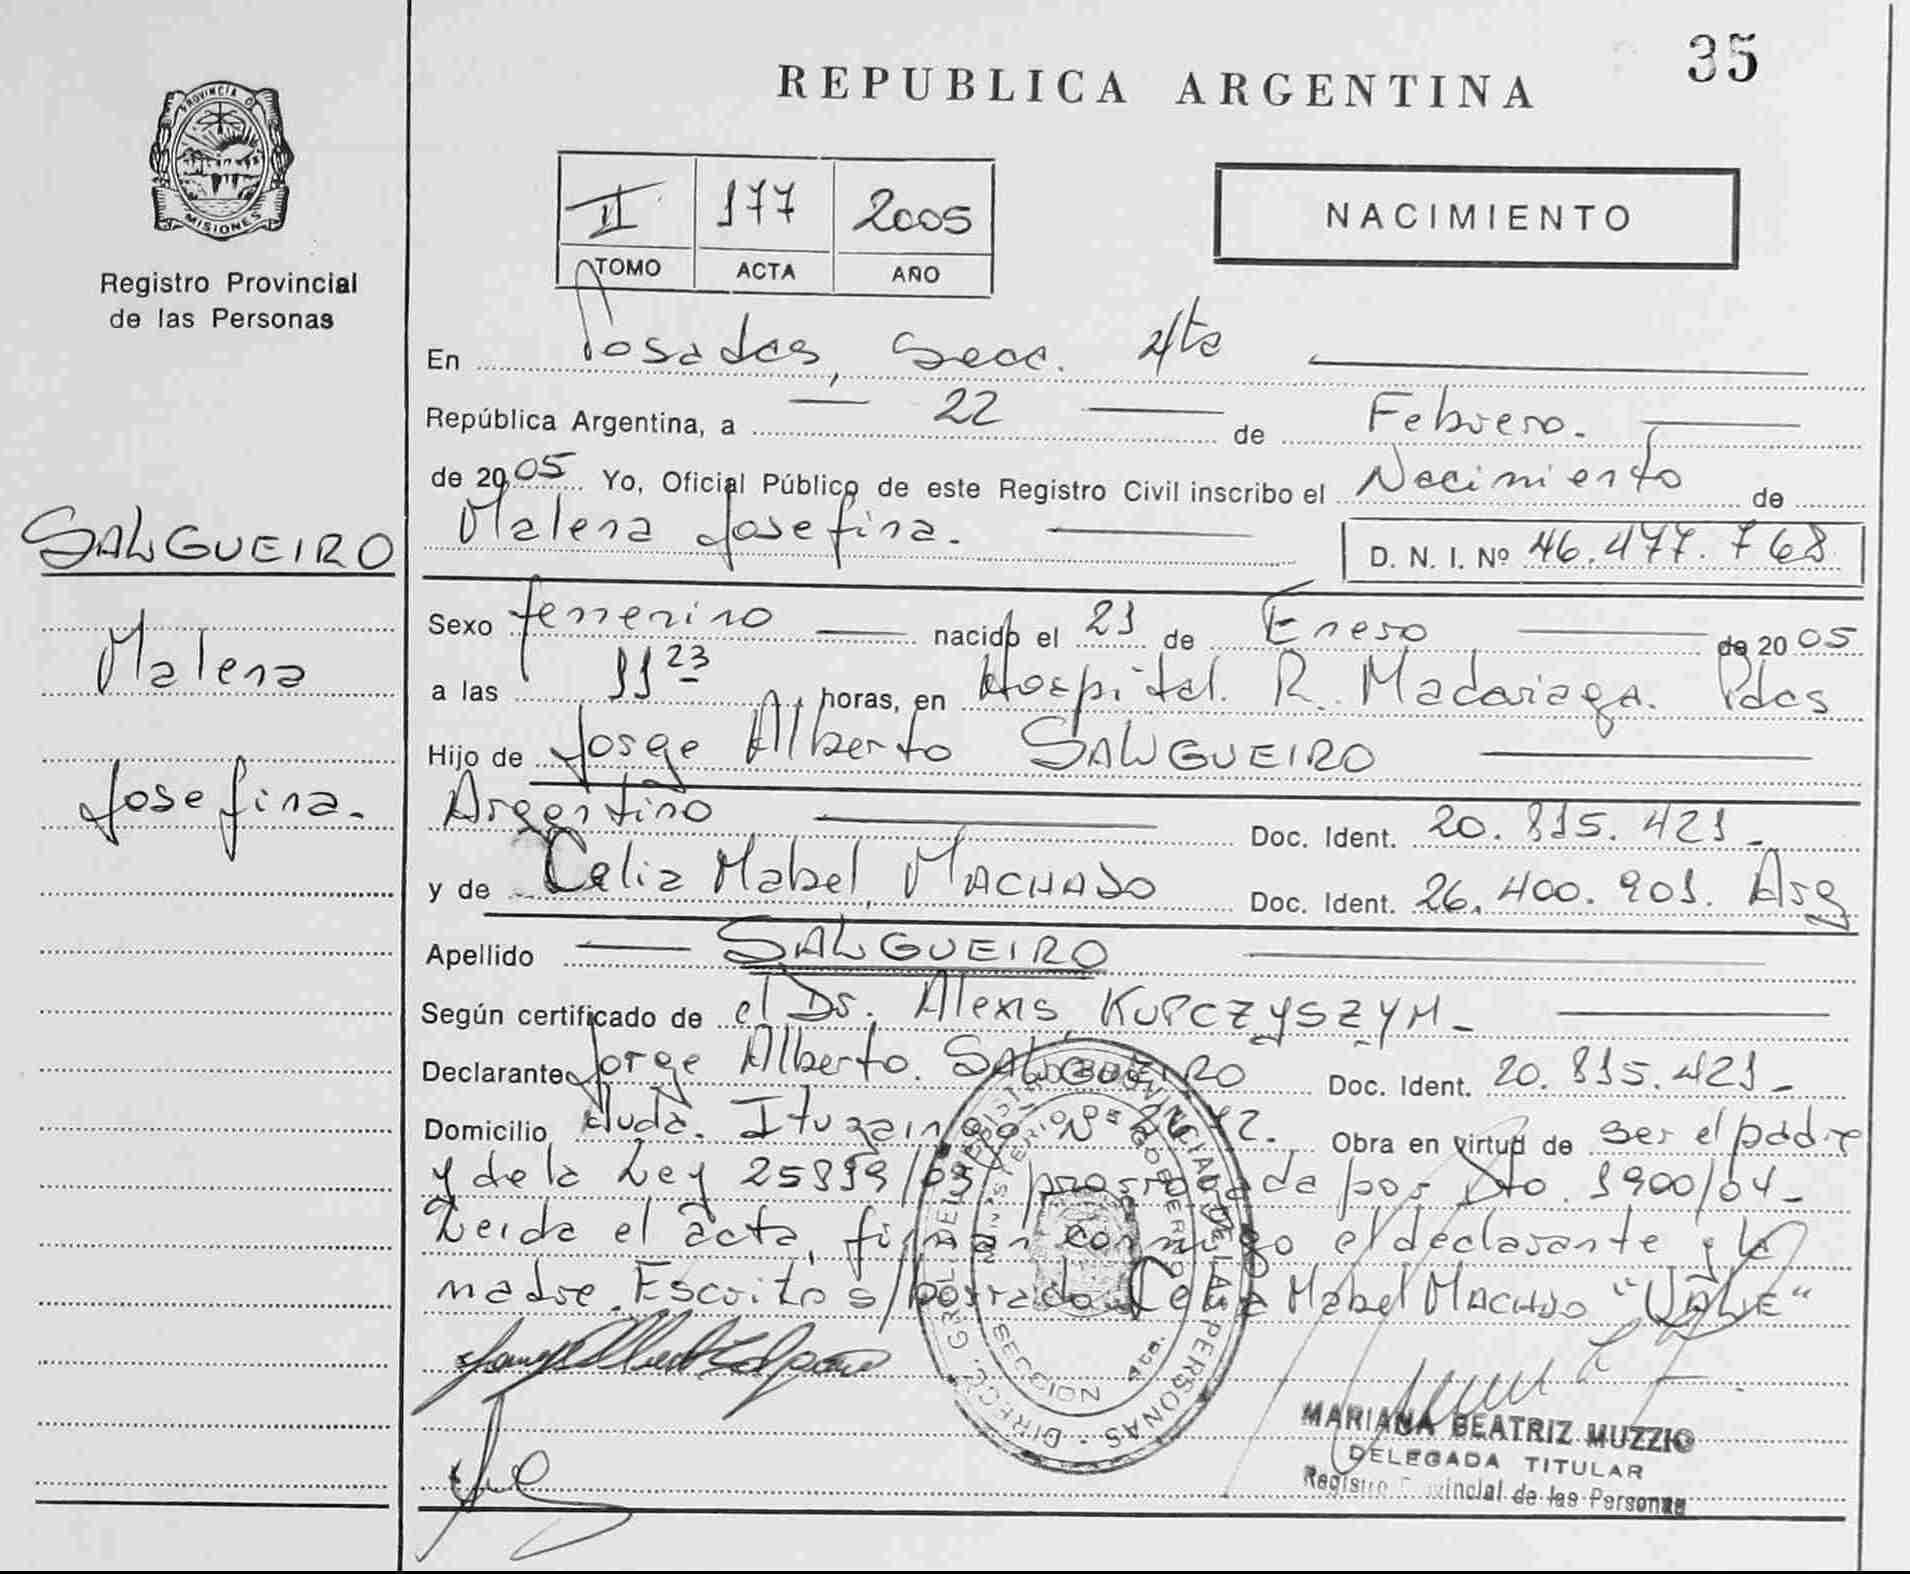 35
REPUBLICA ARGENTINA
PROVINCIA D
MISIONES
Registro Provincial
de las Personas
II 177 2005
TOMO ACTA AÑO
NACIMIENTO
En Posadas, Secc. 4ta
República Argentina, a 22 de Febrero.
de 2005 Yo, Oficial Público de este Registro Civil inscribo el Nacimiento de
Malena Josefina.
D. N. I. Nº 46.477.768
SALGUEIRO
Malena
Josefina.
Sexo femenino nacido el 21 de Enero de 2005
a las 11 23 horas, en Hospital. R. Madariaga. Pdas
Hijo de Jorge Alberto SALGUEIRO
Argentino Doc. Ident. 20.815.421-
y de Celia Mabel MACHADO Doc. Ident. 26.400.901. Arg
Apellido SALGUEIRO
Según certificado de el Dr. Alexis KUPCZYSZYM-
Declarante Jorge Alberto. SALGUEIRO Doc. Ident. 20.815.421-
Domicilio Avda. Ituzaingó Nº 42. Obra en virtud de ser el padre
y de la Ley 25819/03, prorrogada por Dto. 1900/04-
Leida el acta, firman conmigo el declarante y la
madre. Escrito s/borrado Celia Mabel MACHADO "VALE"
DIRECC. GRAL. DEL REGISTRO PROVINCIAL DE LAS PERSONAS
MINISTERIO DE GOBIERNO
SECCION 4ta.
MARIANA BEATRIZ MUZZIO
DELEGADA TITULAR
Registro Provincial de las Personas